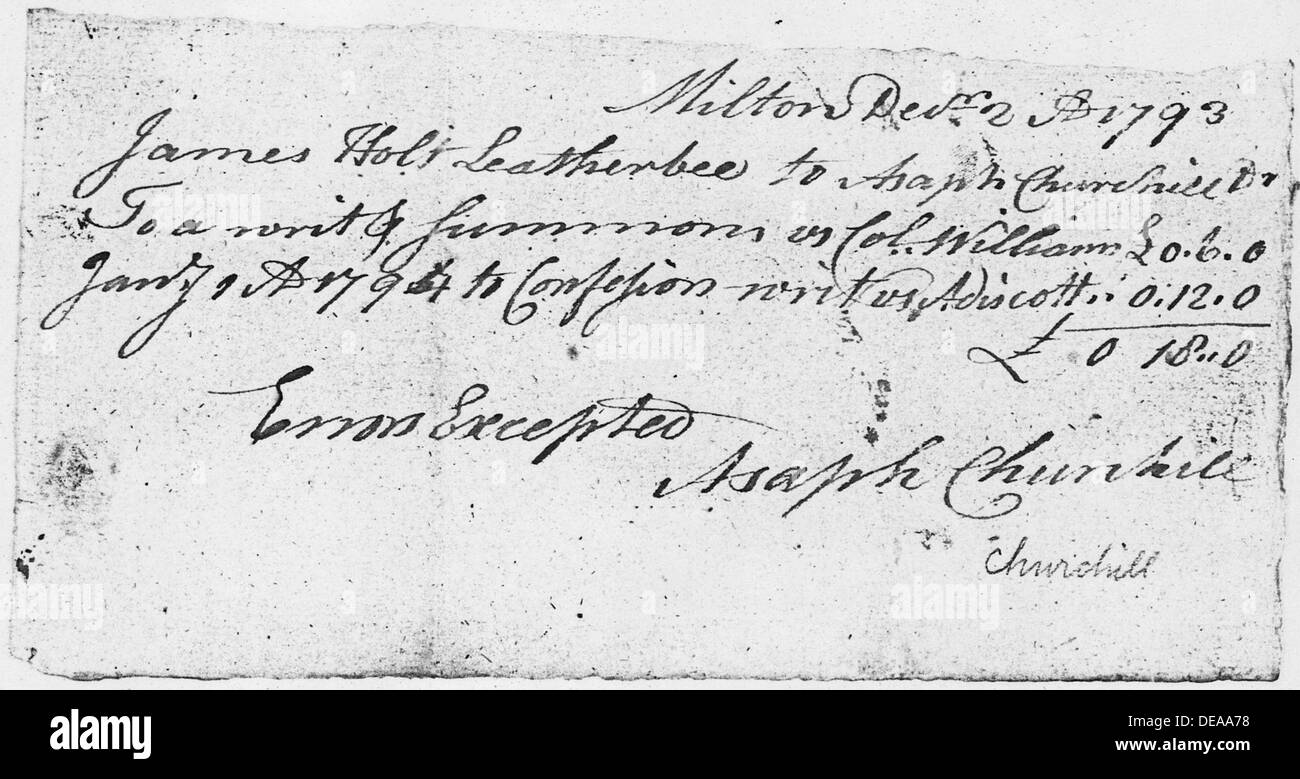 Milton Decr 2 AD 1793
James Holt Leatherbee to Asaph Churchill Dr
To a writ & Summons vs Col. Williams £0.6.0
Jany 9 AD 1794 to Confeſsion writ vs Adiscott.. 0.12.0
£ 0 18..0
Errors Excepted
Asaph Churchill
Churchill
alamy
Image ID: DEAA78
www.alamy.com